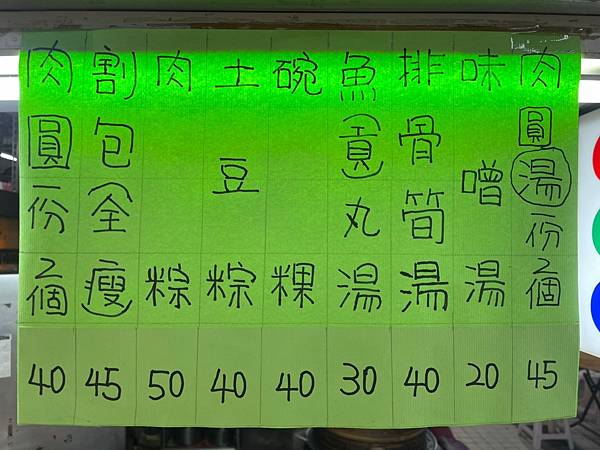 肉圓一份2個 40
割包(全瘦) 45
肉粽 50
土豆粽 40
碗粿 40
魚(貢)丸湯 30
排骨筍湯 40
味噌湯 20
肉圓湯一份2個 45